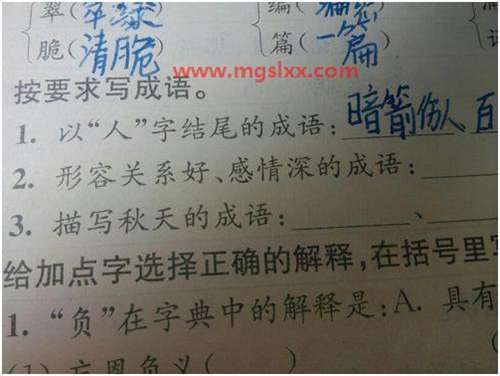 翠（翠绿） 编（
脆（清脆） 篇（一篇）
www.mgslxx.com
按要求写成语。
1. 以“人”字结尾的成语：暗箭伤人 百
2. 形容关系好、感情深的成语：
3. 描写秋天的成语：________、
给加点字选择正确的解释，在括号里写
1. “负”在字典中的解释是：A. 具有
(1) 忘恩负义（ ） （